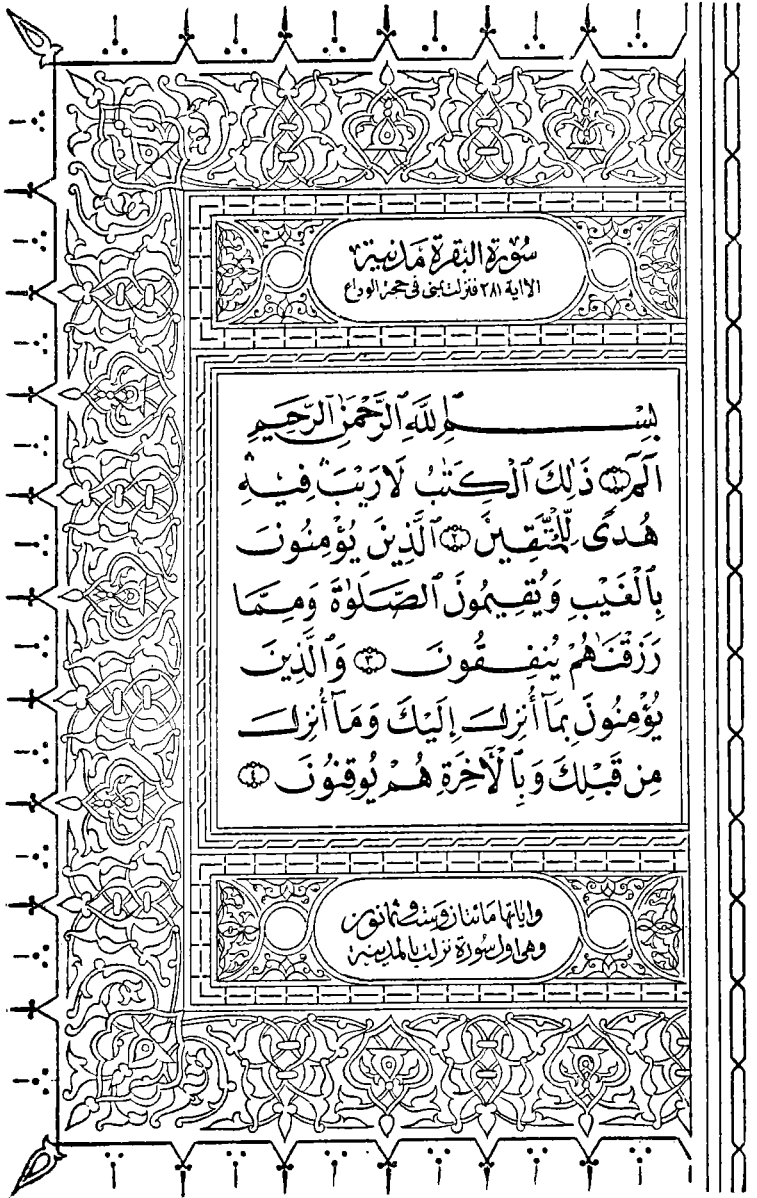 سُورَة البَقَرَة مَدَنِيَة
الا اية ٢٨١ فنزلت بمنى في حجة الوداع
بِسْمِ ٱللَّهِ ٱلرَّحْمَٰنِ ٱلرَّحِيمِ
الٓمٓ ١ ذَٰلِكَ ٱلْكِتَٰبُ لَا رَيْبَ فِيهِ
هُدًى لِّلْمُتَّقِينَ ٢ ٱلَّذِينَ يُؤْمِنُونَ
بِٱلْغَيْبِ وَيُقِيمُونَ ٱلصَّلَوٰةَ وَمِمَّا
رَزَقْنَٰهُمْ يُنفِقُونَ ٣ وَٱلَّذِينَ
يُؤْمِنُونَ بِمَآ أُنزِلَ إِلَيْكَ وَمَآ أُنزِلَ
مِن قَبْلِكَ وَبِٱلْأَخِرَةِ هُمْ يُوقِنُونَ ٤
واياتها مائتان وست وثمانون
وهي اول سورة نزلت بالمدينة